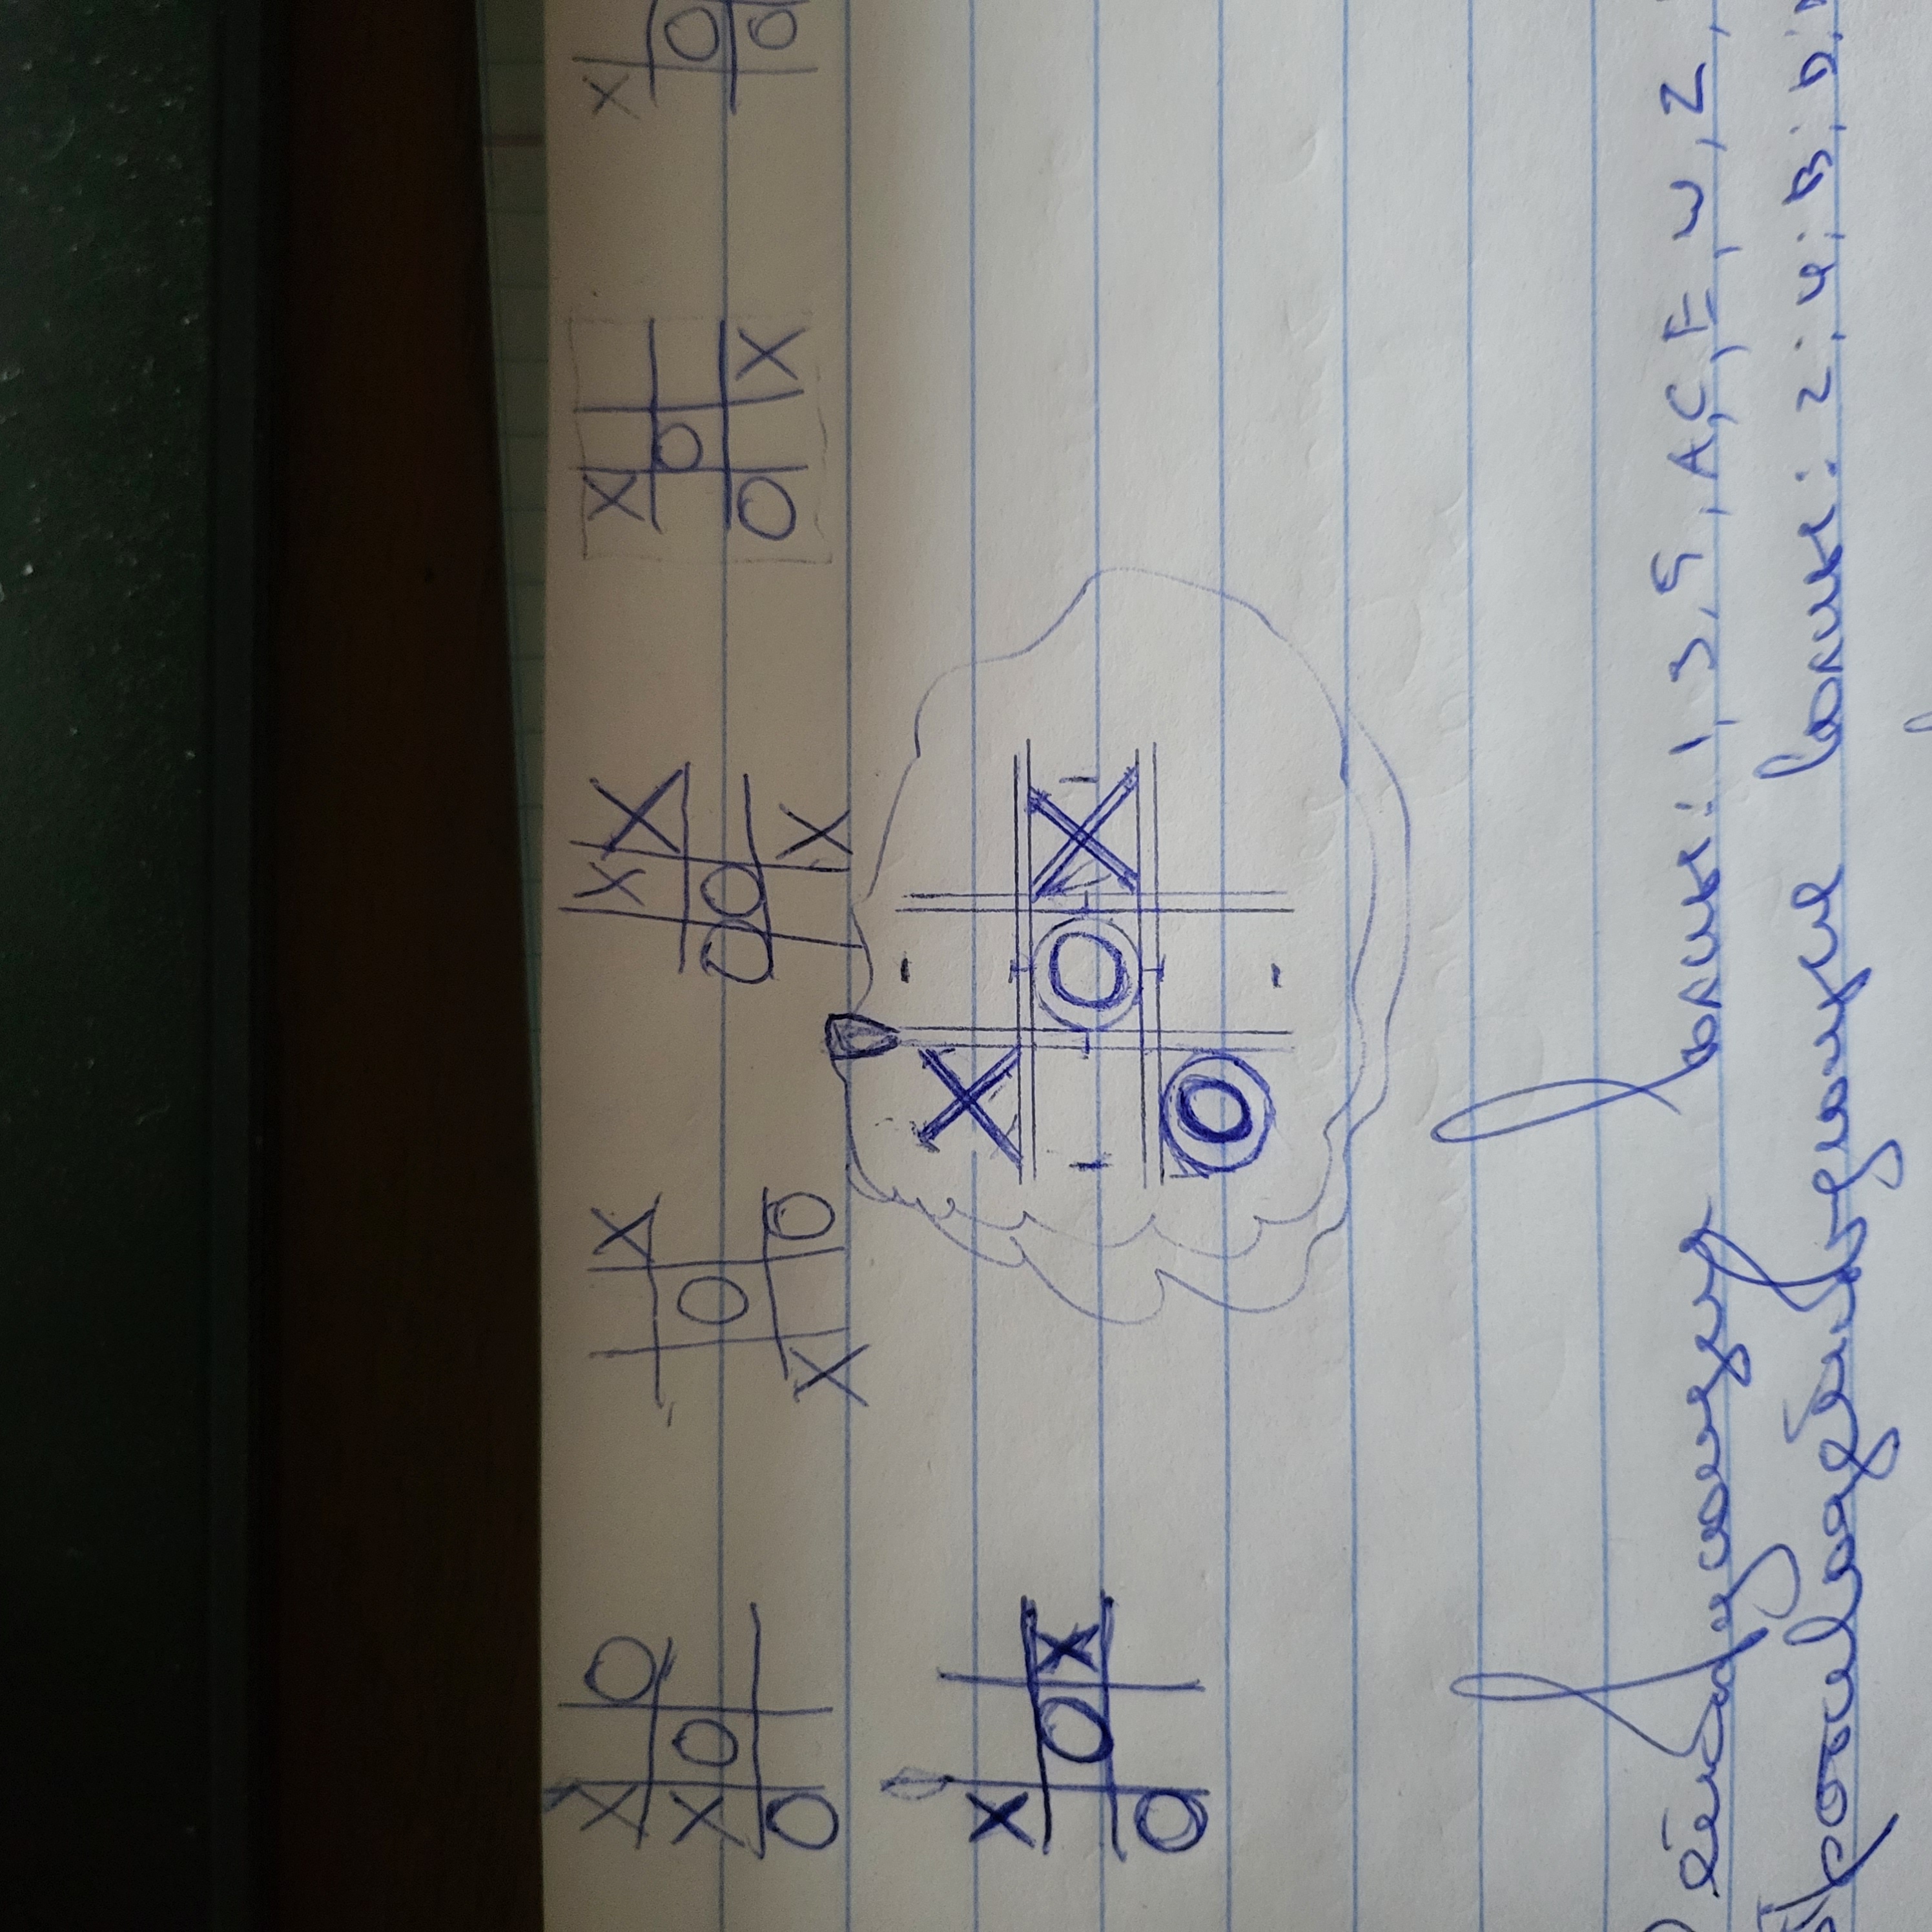 X O
X O
O
X
O
X O
X X
O O
X
X
O
O X
X
O
O
X
O X
O
X
O X
O
Действующие волны: 1, 3, 5, A, C, E, W, Z,
Противодействующие волны: 2; 4; B; D;